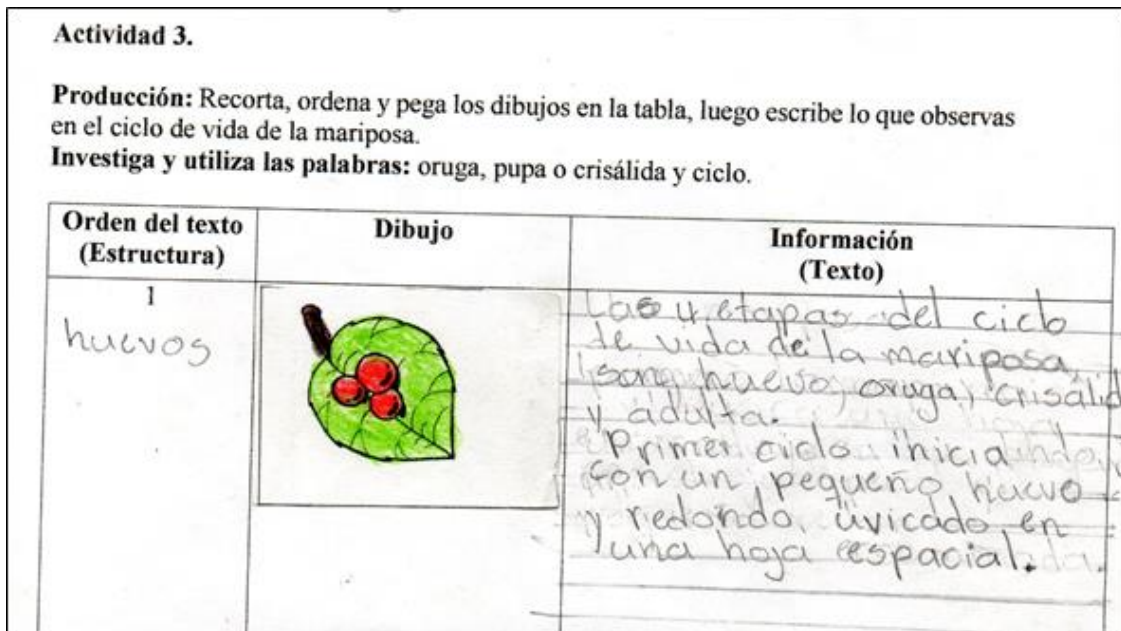 Actividad 3.
Producción: Recorta, ordena y pega los dibujos en la tabla, luego escribe lo que observas
en el ciclo de vida de la mariposa.
Investiga y utiliza las palabras: oruga, pupa o crisálida y ciclo.
Orden del texto
(Estructura)
Dibujo
Información
(Texto)
1
huevos
Las 4 etapas del ciclo
de vida de la mariposa,
son huevo, oruga, crisálid
y adulta.
Primer ciclo inicia
con un pequeño huevo
y redondo, uvicado en
una hoja espacial.